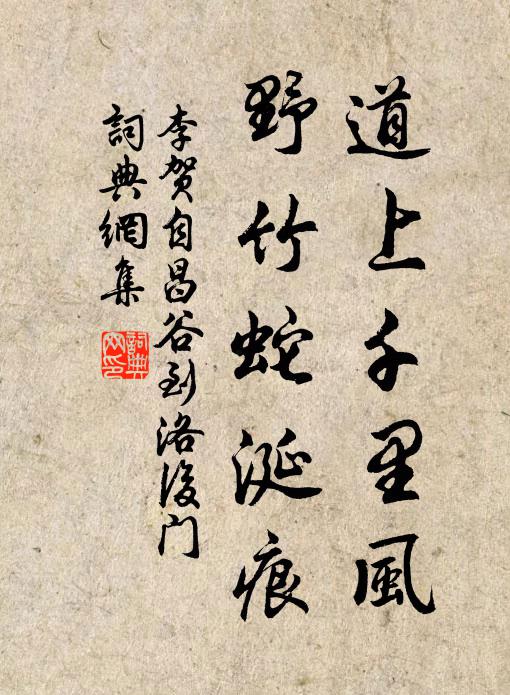 道上千里風
野竹蛇涎痕
李贺自昌谷到洛後门
詞典網集
詞典
网印